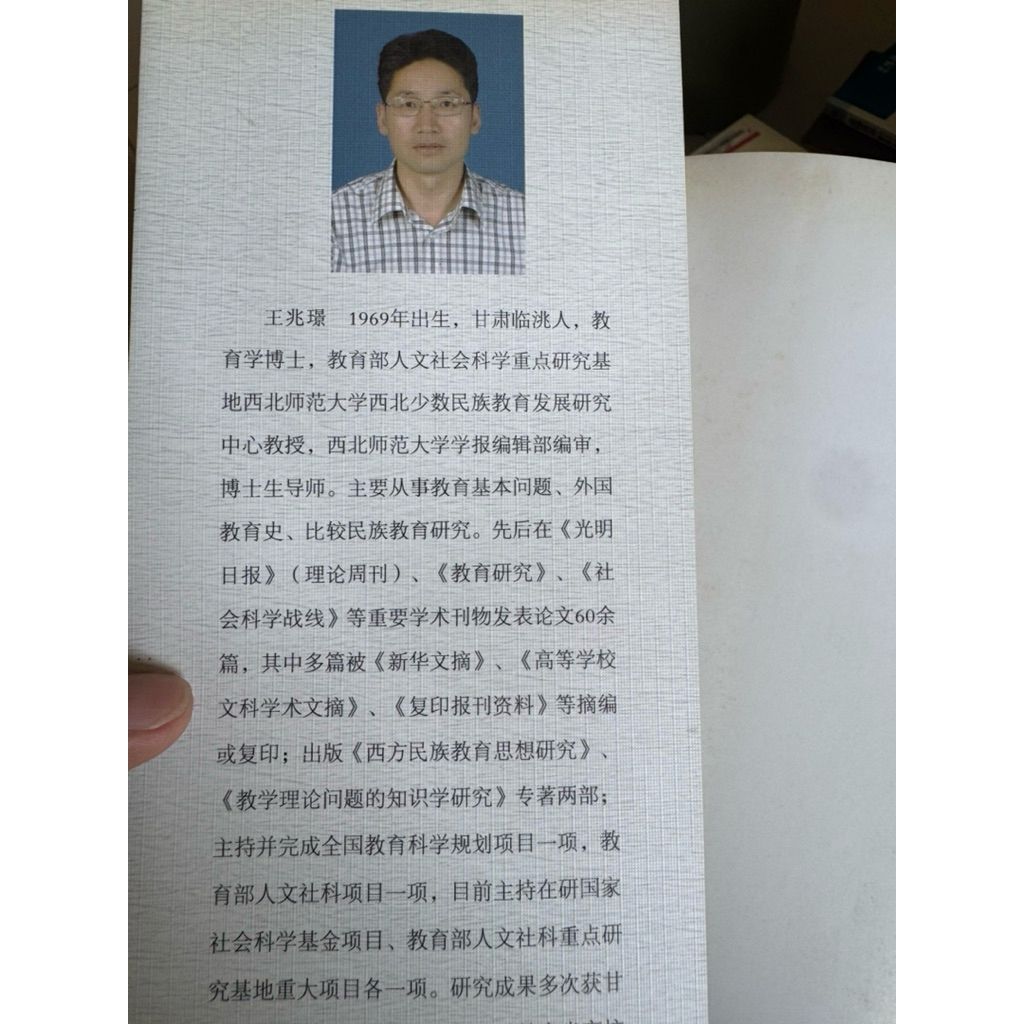 王兆璟 1969年出生，甘肃临洮人，教
育学博士，教育部人文社会科学重点研究基
地西北师范大学西北少数民族教育发展研究
中心教授，西北师范大学学报编辑部编审，
博士生导师。主要从事教育基本问题、外国
教育史、比较民族教育研究。先后在《光明
日报》（理论周刊）、《教育研究》、《社
会科学战线》等重要学术刊物发表论文60余
篇，其中多篇被《新华文摘》、《高等学校
文科学术文摘》、《复印报刊资料》等摘编
或复印；出版《西方民族教育思想研究》、
《教学理论问题的知识学研究》专著两部；
主持并完成全国教育科学规划项目一项，教
育部人文社科项目一项，目前主持在研国家
社会科学基金项目、教育部人文社科重点研
究基地重大项目各一项。研究成果多次获甘